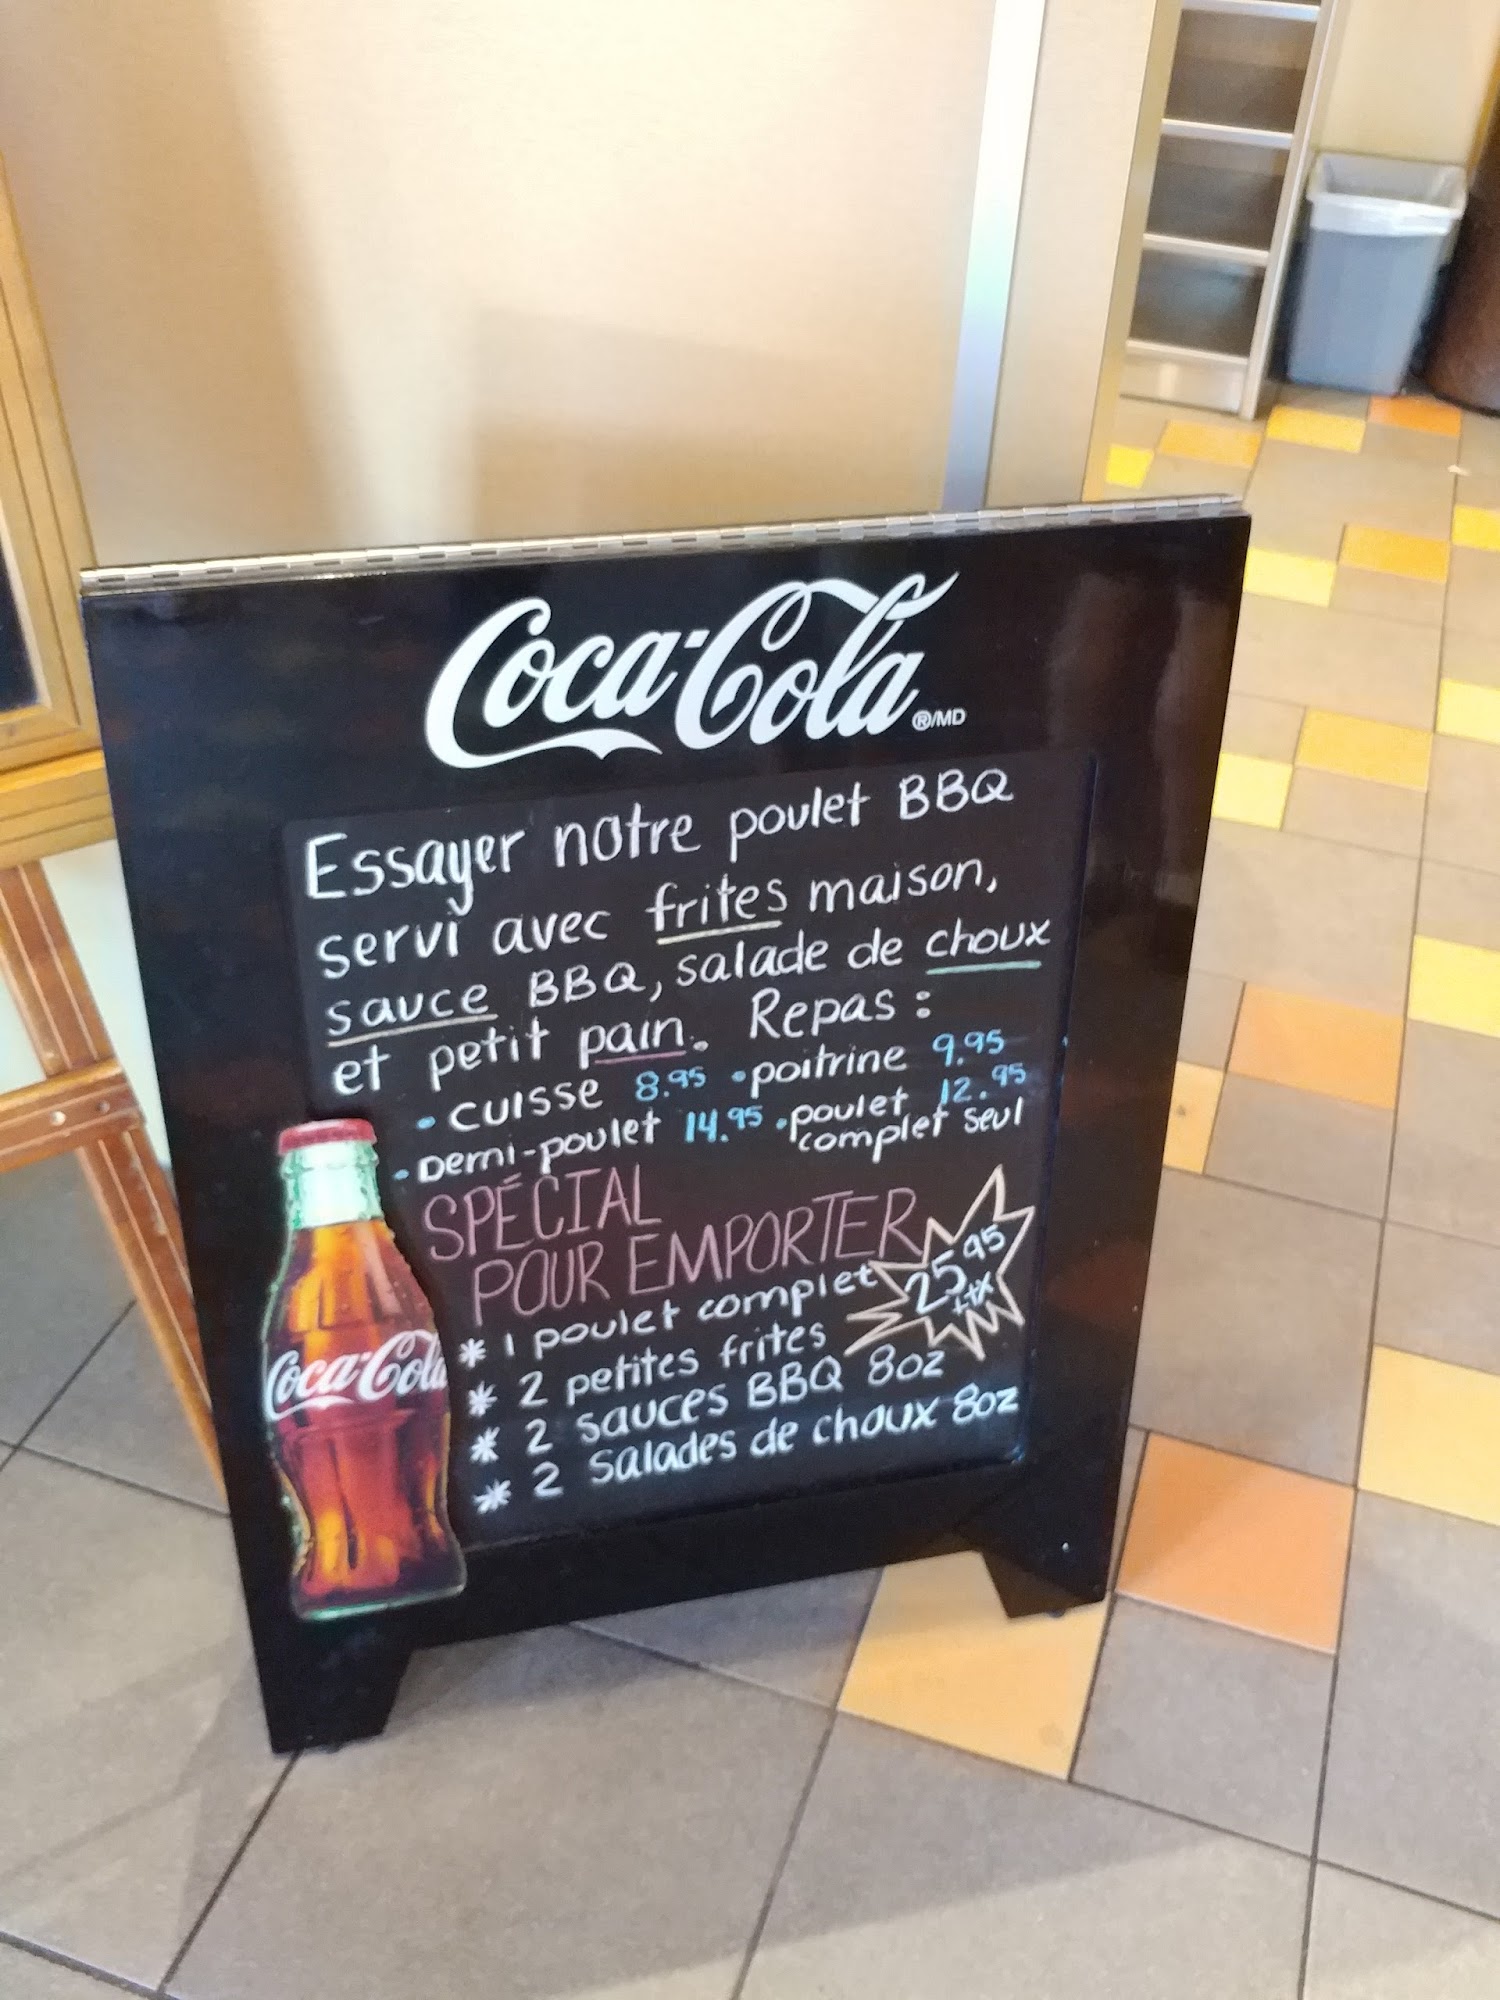 Coca-Cola ®/MD
Essayer notre poulet BBQ
servi avec frites maison,
sauce BBQ, salade de choux
et petit pain. Repas :
• cuisse 8.95 • poitrine 9.95
• Demi-poulet 14.95 • poulet 12.95
complet seul
SPÉCIAL
POUR EMPORTER
25.95
+tx
* 1 poulet complet
* 2 petites frites
* 2 sauces BBQ 8oz
* 2 salades de choux 8oz
Coca-Cola